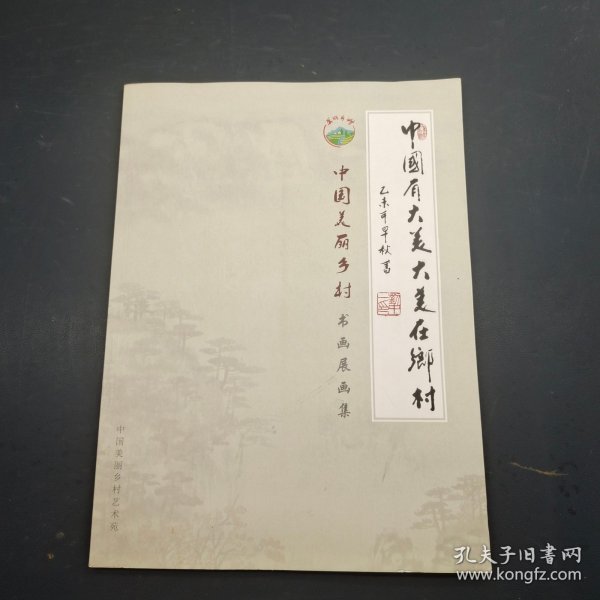 中國有大美大美在鄉村
乙未年早秋書
美丽乡村
中国美丽乡村
书画展画集
中国美丽乡村艺术苑
孔夫子旧书网
www.kongfz.com